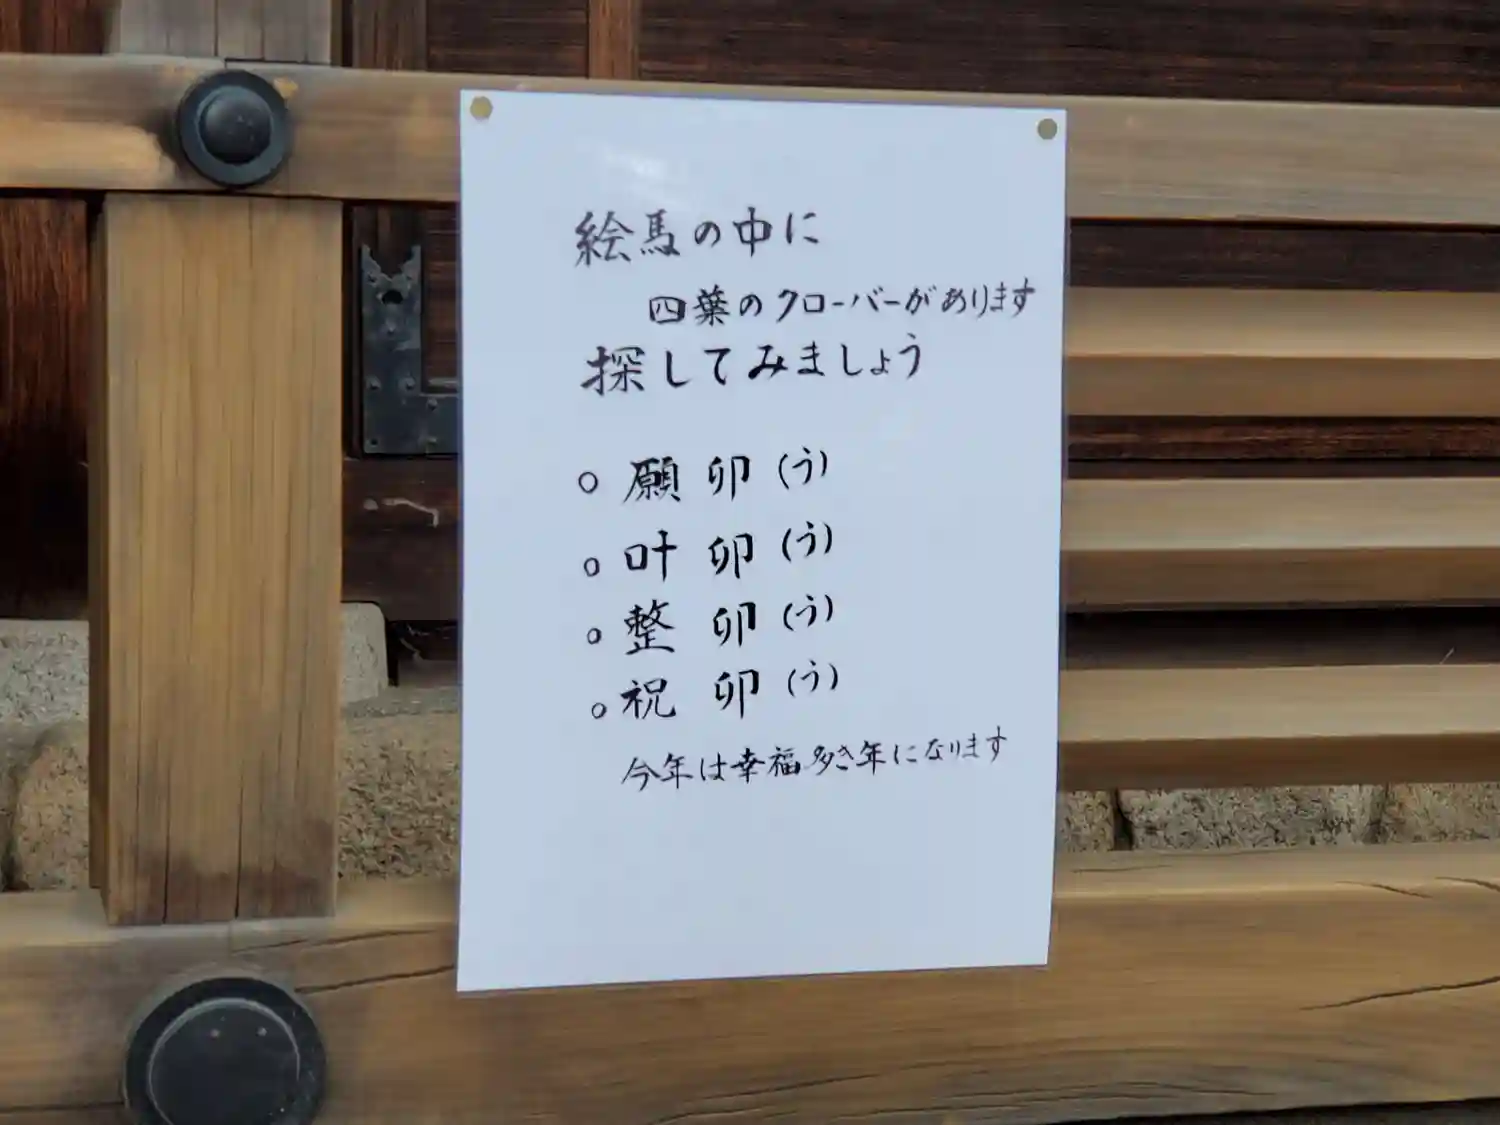 絵馬の中に
四葉のクローバーがあります
探してみましょう
○ 願 卯 (う)
○ 叶 卯 (う)
○ 整 卯 (う)
○ 祝 卯 (う)
今年は幸福多き年になります